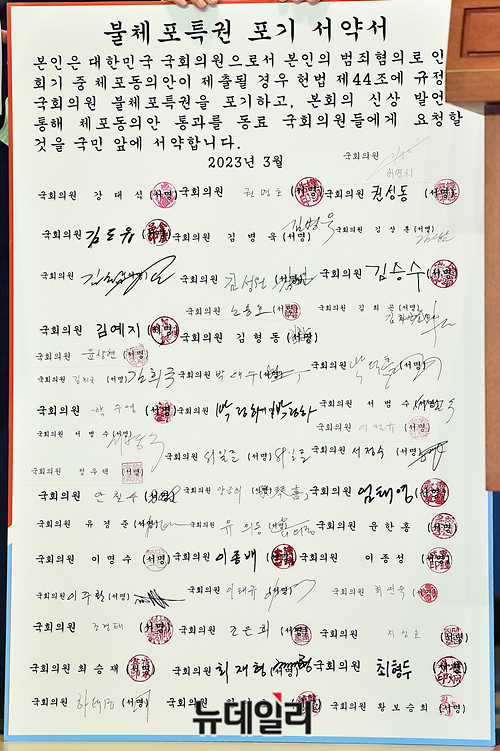 불체포특권 포기 서약서
본인은 대한민국 국회의원으로서 본인의 범죄혐의로 인해
회기 중 체포동의안이 제출될 경우 헌법 제44조에 규정
국회의원 불체포특권을 포기하고, 본회의 신상 발언
통해 체포동의안 통과를 동료 국회의원들에게 요청할
것을 국민 앞에 서약합니다.
2023년 3월
국회의원
국회의원 강대식 (서명) 국회의원 권명호 (서명) 국회의원 권성동 (서명)
국회의원 김도읍 (서명) 국회의원 김병욱 (서명) 국회의원 김상훈 (서명)
국회의원 국회의원 김성원 국회의원 김승수 (서명)
국회의원 노용호 (서명) 국회의원 김희곤 (서명)
국회의원 김예지 (서명) 국회의원 김형동 (서명)
국회의원 윤창현 (서명)
국회의원 김희국 (서명) 김희국 국회의원 박대수 (서명) 국회의원
국회의원 박수영 (서명) 국회의원 박정하 (서명) 박정하 국회의원 서범수 (서명)
국회의원 서병수 (서명) 국회의원 이만규 (서명)
국회의원 서일준 (서명) 서일준 국회의원 서정숙 (서명)
국회의원 정우택 (서명)
국회의원 안철수 (서명) 국회의원 양금희 (서명) 국회의원 엄태영 (서명)
국회의원 유경준 (서명) 국회의원 유의동 (서명) 국회의원 윤한홍 (서명)
국회의원 이명수 (서명) 국회의원 이종배 (서명) 국회의원 이종성 (서명)
국회의원 이주환 (서명) 국회의원 이태규 (서명) 국회의원 최연숙 (서명)
국회의원 조경태 (서명) 국회의원 조은희 (서명) 국회의원 지성호 (서명)
국회의원 최승재 (서명) 국회의원 최재형 (서명) 국회의원 최형두 (서명)
국회의원 하태경 (서명) 국회의원 국회의원 황보승희 (서명)
뉴데일리